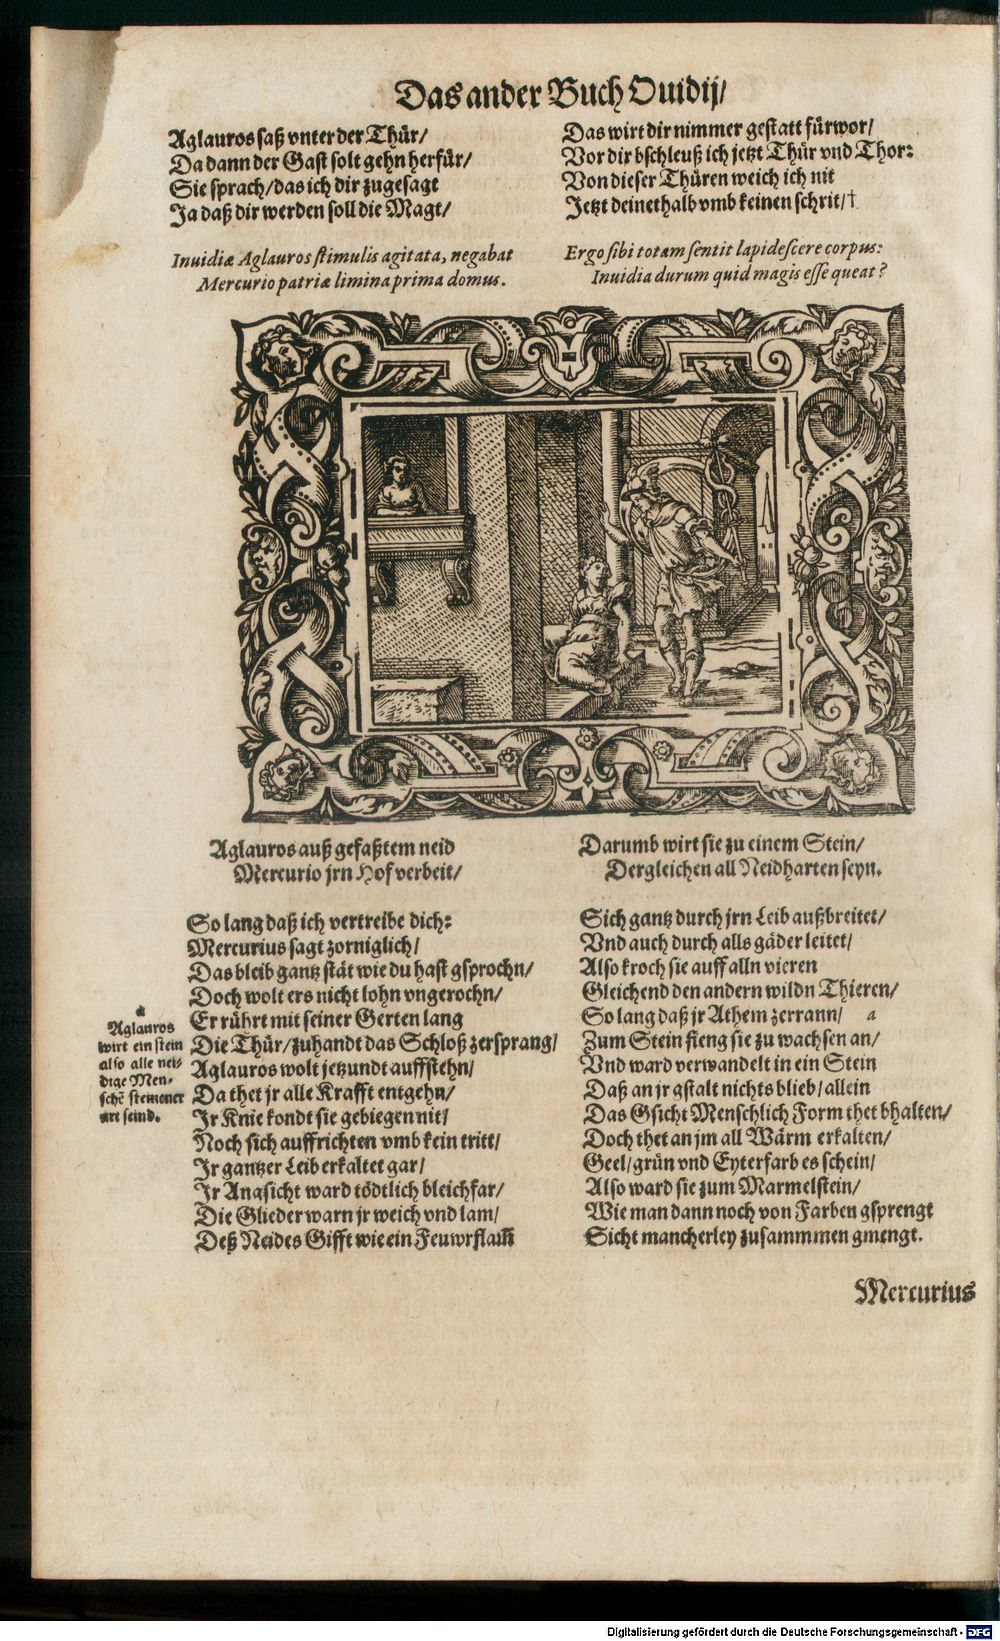 Das ander Buch Ouidij/
Aglauros saß vnter der Thür/
Da dann der Gast solt gehn herfür/
Sie sprach/das ich dir zugesagt
Ja daß dir werden soll die Magt/
Das wirt dir nimmer gestatt fürwor/
Vor dir bschleuß ich jetzt Thür vnd Thor:
Von dieser Thüren weich ich nit
Jetzt deinethalb vmb keinen schrit/†
Inuidiæ Aglauros stimulis agitata, negabat
Mercurio patriæ limina prima domus.
Ergo sibi totam sentit lapidescere corpus:
Inuidia durum quid magis esse queat?
Aglauros auß gefaßtem neid
Mercurio jrn Hof verbeit/
Darumb wirt sie zu einem Stein/
Dergleichen all Neidharten seyn.
So lang daß ich vertreibe dich:
Mercurius sagt zorniglich/
Das bleib gantz stät wie du hast gsprochn/
Doch wolt ers nicht lohn vngerochn/
Er rührt mit seiner Gerten lang
Die Thür/zuhandt das Schloß zersprang/
Aglauros wolt jetzundt auffstehn/
Da thet jr alle Krafft entgehn/
Jr Knie kondt sie gebiegen nit/
Noch sich auffrichten vmb kein tritt/
Jr gantzer Leib erkaltet gar/
Jr Angsicht ward tödtlich bleichfar/
Die Glieder warn jr weich vnd lam/
Deß Neides Gifft wie ein Feuwrflam̃
a
Aglauros
wirt ein stein
also alle nei-
dige Men-
schẽ steinener
art seind.
Sich gantz durch jrn Leib außbreitet/
Vnd auch durch alls gäder leitet/
Also kroch sie auff alln vieren
Gleichend den andern wildn Thieren/
So lang daß jr Athem zerrann/ a
Zum Stein fieng sie zu wachsen an/
Vnd ward verwandelt in ein Stein
Daß an jr gstalt nichts blieb/allein
Das Gsicht Menschlich Form thet bhalten/
Doch thet an jm all Wärm erkalten/
Geel/grün vnd Eyterfarb es schein/
Also ward sie zum Marmelstein/
Wie man dann noch von Farben gsprengt
Sicht mancherley zusammmen gmengt.
Mercurius
Digitalisierung gefördert durch die Deutsche Forschungsgemeinschaft - DFG